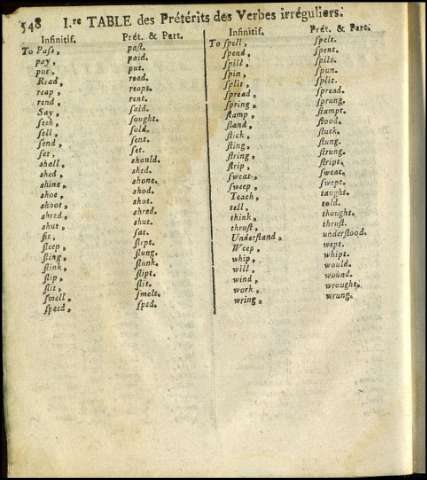 548 I.re TABLE des Prétérits des Verbes irréguliers.
Infinitif. Prét. & Part.
To Paſs, paſt.
pay, paid.
put, put.
Read, read.
reap, reapt.
rend, rent.
Say, ſaid.
ſeek, ſought.
ſell, ſold.
ſend, ſent.
ſet, ſet.
ſhall, ſhould.
ſhed, ſhed.
ſhine, ſhone.
ſhoe, ſhod.
ſhoot, ſhot.
ſhred, ſhred.
ſhut, ſhut.
ſit, ſat.
ſleep, ſlept.
ſling, ſlung.
ſlink, ſlunk.
ſlip, ſlipt.
ſlit, ſlit.
ſmell, ſmelt.
ſpeed, ſped.
Infinitif. Prét. & Part.
To ſpell, ſpelt.
ſpend, ſpent.
ſpill, ſpilt.
ſpin, ſpun.
ſplit, ſplit.
ſpread, ſpread.
ſpring, ſprung.
ſtamp, ſtampt.
ſtand, ſtood.
ſtick, ſtuck.
ſting, ſtung.
ſtring, ſtrung.
ſtrip, ſtript.
ſweat, ſweat.
ſweep, ſwept.
Teach, taught.
tell, told.
think, thought.
thruſt, thruſt.
Underſtand, underſtood.
Weep, wept.
whip, whipt.
will, would.
wind, wound.
work, wrought.
wring, wrung.